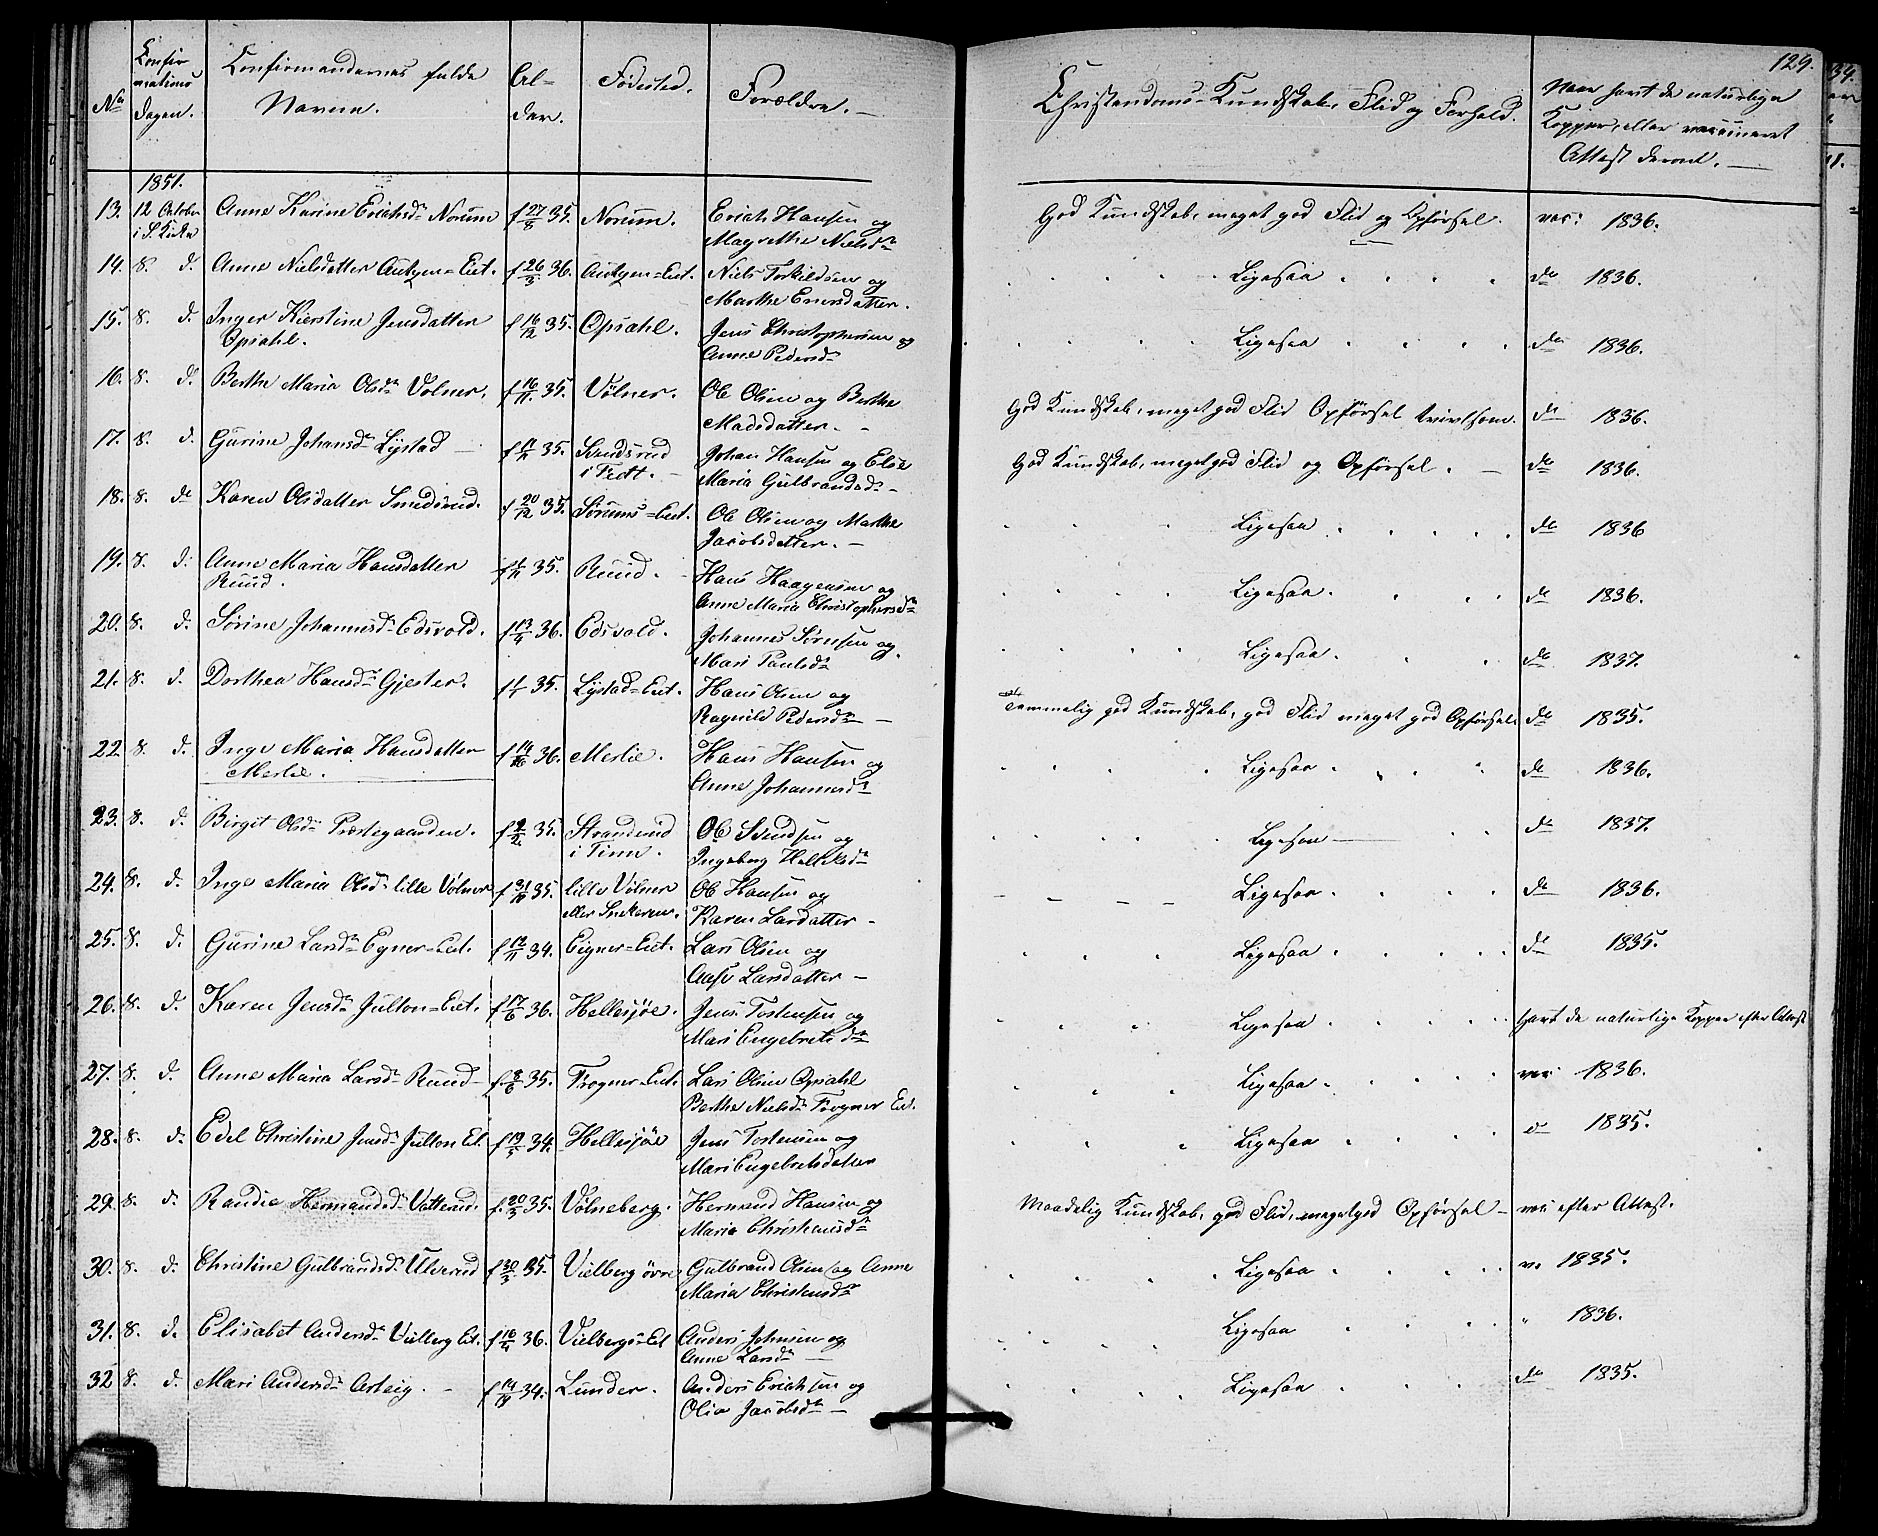 129.
No
Confir-
mations
Dagen.
Confirmandernes fulde
Navne.
Al-
der.
Fødested.
Forældre.
Christendoms-Kundskab, Flid og Forhold.
Naar havt de naturlige
Kopper, eller vaccineret
Attest derom.
1851.
13. 12 October Anne Karine Erichsdr Norum f 27/8 35. Norum. Erich Hansen og God Kundskab, meget god Flid og Opførsel. vac: 1836.
i S. Kirke Magrethe Nielsdr
14. 8. d. Anne Nielsdatter Autgen=Eiet. f 26/3 36. Autgen=Eiet. Niels Torkildsen og Ligesaa do 1836.
Marthe Enersdatter.
15. 8. d. Inger Kierstine Jensdatter f 16/12 35. Opsahl. Jens Christophersen og Ligesaa do 1836.
Opsahl. Anne Pedersdr
16. 8. d. Berthe Maria Olsdr Vølner. f 16/11 35. Vølner. Ole Olsen og Berthe God Kundskab, meget god Flid Opførsel tvivlsom. do 1836.
Madsdatter.
17. 8. d. Gurine Johansdr Lystad f 35. Svendsrud Johan Hansen og Else God Kundskab, meget god Flid og Opførsel. do 1836.
i Fedt. Maria Gulbrandsdr
18. 8. do Karen Olsdatter Smedsrud. f 20/12 35. Sørums=Eiet. Ole Olsen og Marthe Ligesaa do 1836
Jacobsdatter.
19. 8. d. Anne Maria Hansdatter f 1/11 35. Ruud. Hans Haagensen og Ligesaa. do 1836.
Ruud. Anne Maria Christophersdr
20. 8. d. Sørine Johannesdr Edsvold. f 13/4 36. Edsvold. Johannes Sørensen og Ligesaa. do 1837.
Mari Paulsdr
21. 8. d. Dorthea Hansdr Gjester. f 1/1 35. Lystad=Eiet. Hans Olsen og Temmelig god Kundskab, god Flid meget god Opførsel. do 1835.
Ragnild Pedersdr
22. 8. d. Inge Maria Hansdatter f 36. Merlie. Hans Hansen og Ligesaa do 1836.
Merlie. Anne Johannesdr
23. 8. d. Birgit Olsdr Præstegaarden. f 35. Stranderud Ole Svendsen og Ligesaa do 1837.
i Tinn. Ingeborg
24. 8. d. Inge Maria Olsdr lille Vølner f 31/10 35. lille Vølner Ole Hansen og Ligesaa. do 1836.
eller Snekeren. Karen Larsdatter
25. 8. d. Gurine Larsdr Egner=Eiet. f 12/11 34. Eigner=Eiet. Lars Olsen og Ligesaa do 1835.
Aase Larsdatter
26. 8. d. Karen Jensdr Julton=Eiet. f 17/6 36. Hellesjøe. Jens Tostensen og Ligesaa havt de naturlige Kopper efter Attest
Mari Engebretsdr
27. 8. d. Anne Maria Larsdr Ruud f. 8/6 35. Frogner=Eiet. Lars Olsen Opsahl Ligesaa. vac: 1836.
Berthe Nielsdr Frogner Eiet.
28. 8. d. Edel Christine Jensdr Julton Et. f 34. Hellesjøe Jens Tostensen og Ligesaa d 1835.
Mari Engebretsdatter
29. 8. d. Randie Hermandsdr Vatterud. f. 20/3 35. Vølneberg. Hermand Hansen og Maadelig Kundskab, god Flid, meget god Opførsel efter Attest.
Maria Christensdr
30. 8. d. Christine Gulbrandsdr Ulverud f 20/3 35. Vielberg øvre Gulbrand Olsen og Anne Ligesaa v. 1835.
Maria Christensdr
31. 8. d. Elisabet Andersdr Vielberg Et. f 16/4 36. Vielbergs=Et Anders Johnsen og Ligesaa " 1836.
Anne Larsdr
32 8. d. Mari Andersdr Asteig. f 34. Lunder. Anders Erichsen og Ligesaa do 1835.
Olia Jacobsdr